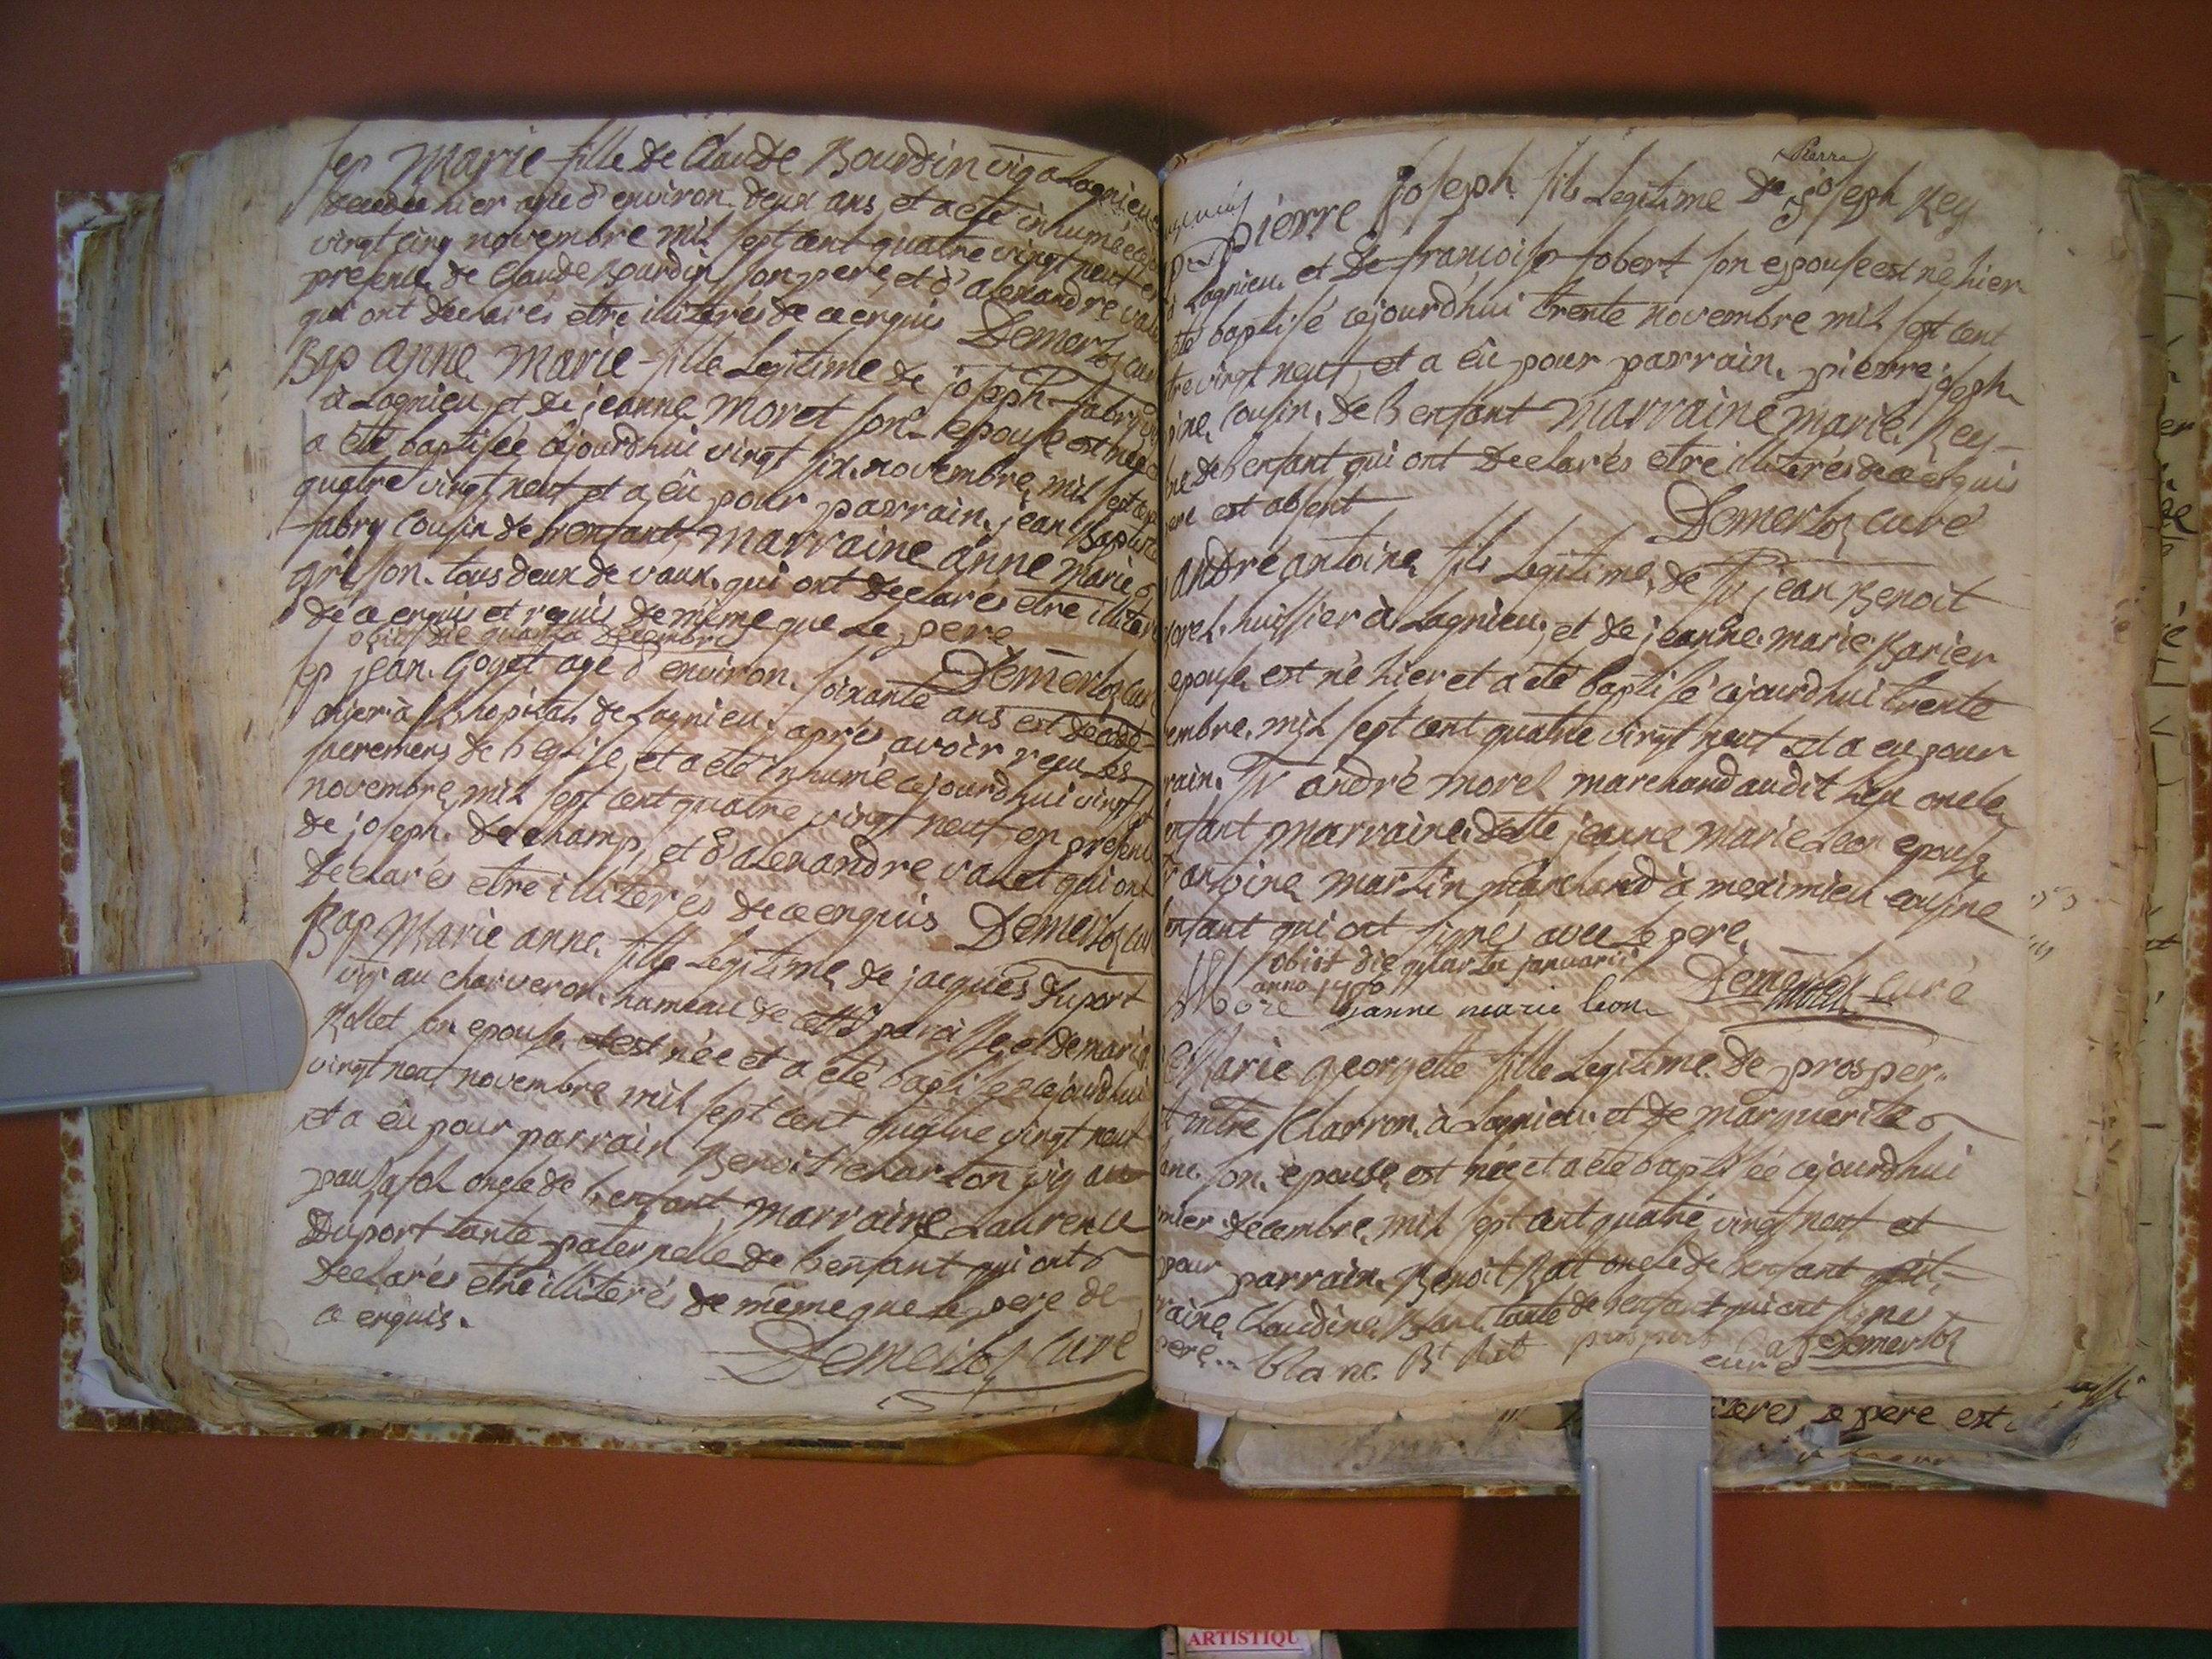 Sep Marie fille de Claude Bourdin vig a Lagnieu
decedee hier agée d'environ deux ans et a été inhumée
vingt cinq novembre mil sept cent quatre vingt neuf en
presence de Claude Bourdin son pere et d'alexandre
qui ont declarés etre illiterés de ce enquis Demerloz
Bap anne Marie fille Legitime de joseph fabry
à Lagnieu et de jeanne Moret son epouse est née
a été baptisée cejourdhui vingt six novembre mil sept
quatre vingt neuf et a eû pour parrain jean Baptiste
fabry Cousin de l'enfant marraine anne Marie
grison tous deux de vaux qui ont declarés etre
de ce enquis et requis de même que Le pere
obiit die quarta decembris
Demerloz
Sep jean Goget age d'environ soixante ans est decedé
à l'hopital de Lagnieu après avoir reçu les
de l'eglise et a été inhumé cejourdhui vingt
novembre mil sept cent quatre vingt neuf en presence
de joseph dechamp et d'alexandre valet qui ont
declarés etre illiterés de ce enquis Demerloz
Bap Marie anne fille Legitime de jacques duport
vig au charveron hameau de cette paroisse et de marie
Rollet son epouse est née et a été baptisée cejourdhui
vingt neuf novembre mil sept cent quatre vingt neuf
et a eû pour parrain Benoit charton vig au
oncle de l'enfant marraine Laurence
Duport tante paternelle de l'enfant qui ont
declarés etre illiterés de même que le pere de
ce enquis.
Demerloz curé
Pierre
pierre joseph fils Legitime de joseph Rey
à Lagnieu et de françoise jobert son epouse est né hier
été baptisé cejourdhui trente novembre mil sept cent
tre vingt neuf et a eû pour parrain pierre joseph
cousin de l'enfant marraine marie Rey
de l'enfant qui ont declarés etre illiterés de ce enquis
pere est absent
Demerloz curé
andré antoine fils Legitime de Sr jean Benoit
morel huissier à Lagnieu et de jeanne marie Barier
epouse est né hier et a été baptisé cejourdhui trente
embre mil sept cent quatre vingt neuf et a eu pour
rain Sr andré morel marchand audit lieu oncle
enfant marraine delle jeanne Marie Leon epouse
antoine martin marchand à meximieu cousine
enfant qui ont signés avec le pere
obiit die quarta januarii
anno 1790
Demerloz curé
jeanne marie leon
morel
Marie georgette fille Legitime de prosper
charron à Lagnieu et de marguerite
son epouse est née et a été baptisée cejourdhui
mier decembre mil sept cent quatre vingt neuf et
pour parrain Benoit Rat oncle de l'enfant
raine Claudine Blanc tante de l'enfant qui ont signés
pere
blanc Bt Rat
Demerloz
curé
iterés Le pere est
ARTISTIQU